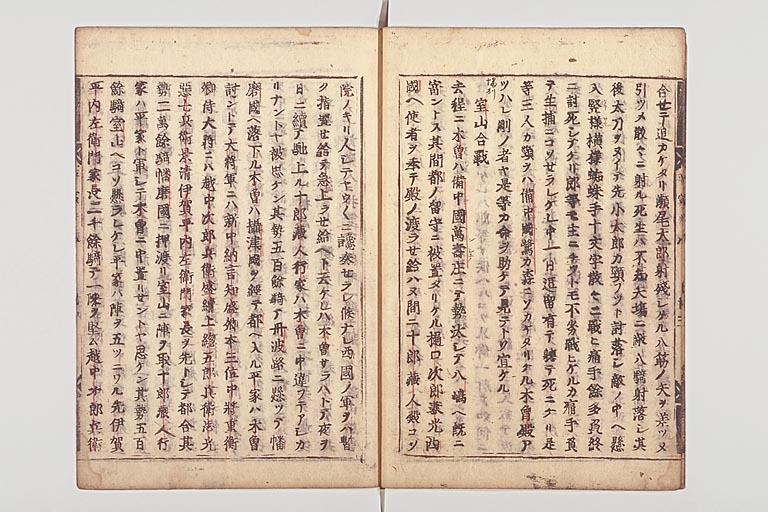 合セテ追カケタリ瀬尾太郎射残シケル八筋ノ矢ヲ差ツメ
引ツメ散々ニ射ル死生ハ不知矢場ニ敵八騎射落シ其
後太刀ヲヌイテ先小太郎カ頸フツト討落シ敵ノ中ヘ懸
入竪様横様蜘蛛手十文字散々ニ戦ヒ痛手餘多負終
ニ討死シテケリ郎等モ主ニチツトモ不劣戦ヒケルカ痛手負
テ生捕ニコソセラレケレ中一日逗留有テ軈テ死ニケリ是
等三人カ頸ヲハ備中國鷺カ森ニソカケタリケル木曽殿ア
ツハレ剛ノ者ヤ是等カ命ヲ助ケテ見テトソ宣ケル
室山合戰
去程ニ木曽ハ備中國萬壽庄ニテ勢汰シテ八嶋ヘ既ニ
寄ントス其間都ノ留守ニ被置タリケル樋口次郎兼光西
國ヘ使者ヲ奉テ殿ノ渡ラセ給ハヌ間ニ十郎藏人殿コソ
院ノキリ人シテヤウ〱ニ讒奏セラレ候ナレ西國ノ軍ヲハ暫
ク指置セ給テ急上ラセ給ヘト云ケレハ木曽サラハトテ夜ヲ
日ニ續テ馳上ル十郎藏人行家ハ木曽ニ中違フテアシカ
リナントヤ被思ケン其勢五百餘騎テ丹波路ニ懸ツテ幡
磨國ヘ落下ル木曽ハ攝津國ヲ經テ都ヘ入ル平家ハ木曽
討ントテ大將軍ニハ新中納言知盛卿本三位中將重衡
御侍大將ニハ越中次郎兵衛盛續上総五郎兵衛忠光
惡七兵衛景清伊賀平内左衛門家長ヲ先トシテ都合其
勢二萬餘騎幡磨國ニ押渡リ室山ニ陣ヲ取十郎藏人行
家ハ平家ト軍シテ木曽ニ中直リセントヤ思ケン其勢五百
餘騎室山ヘコソ懸ラレケレ平家ハ陣ヲ五ツニワル先伊賀
平内左衛門家長二千餘騎テ一陣ヲ堅ム越中次郎兵衛